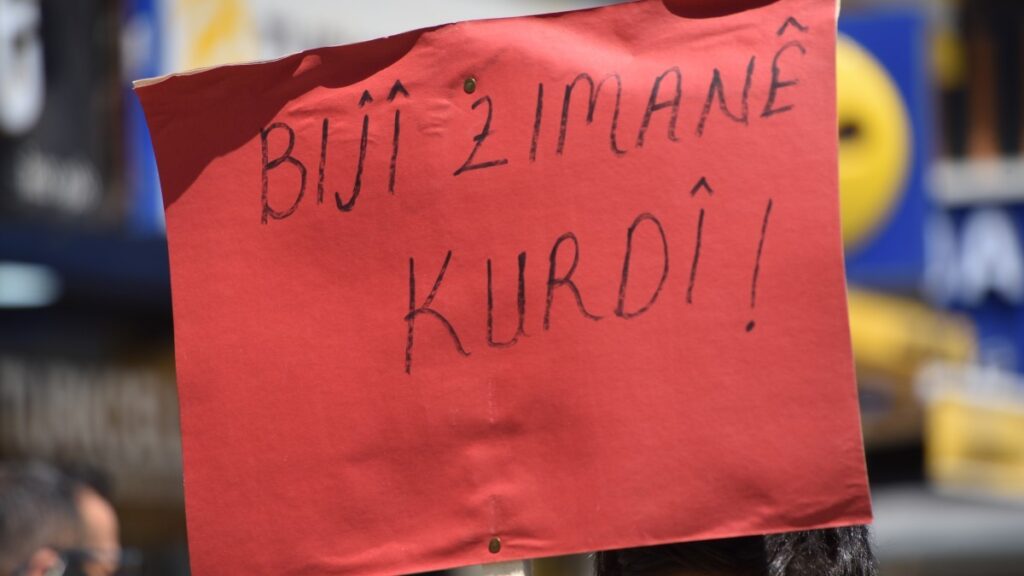 BIĴÎ ZIMANÊ
KURDÎ !